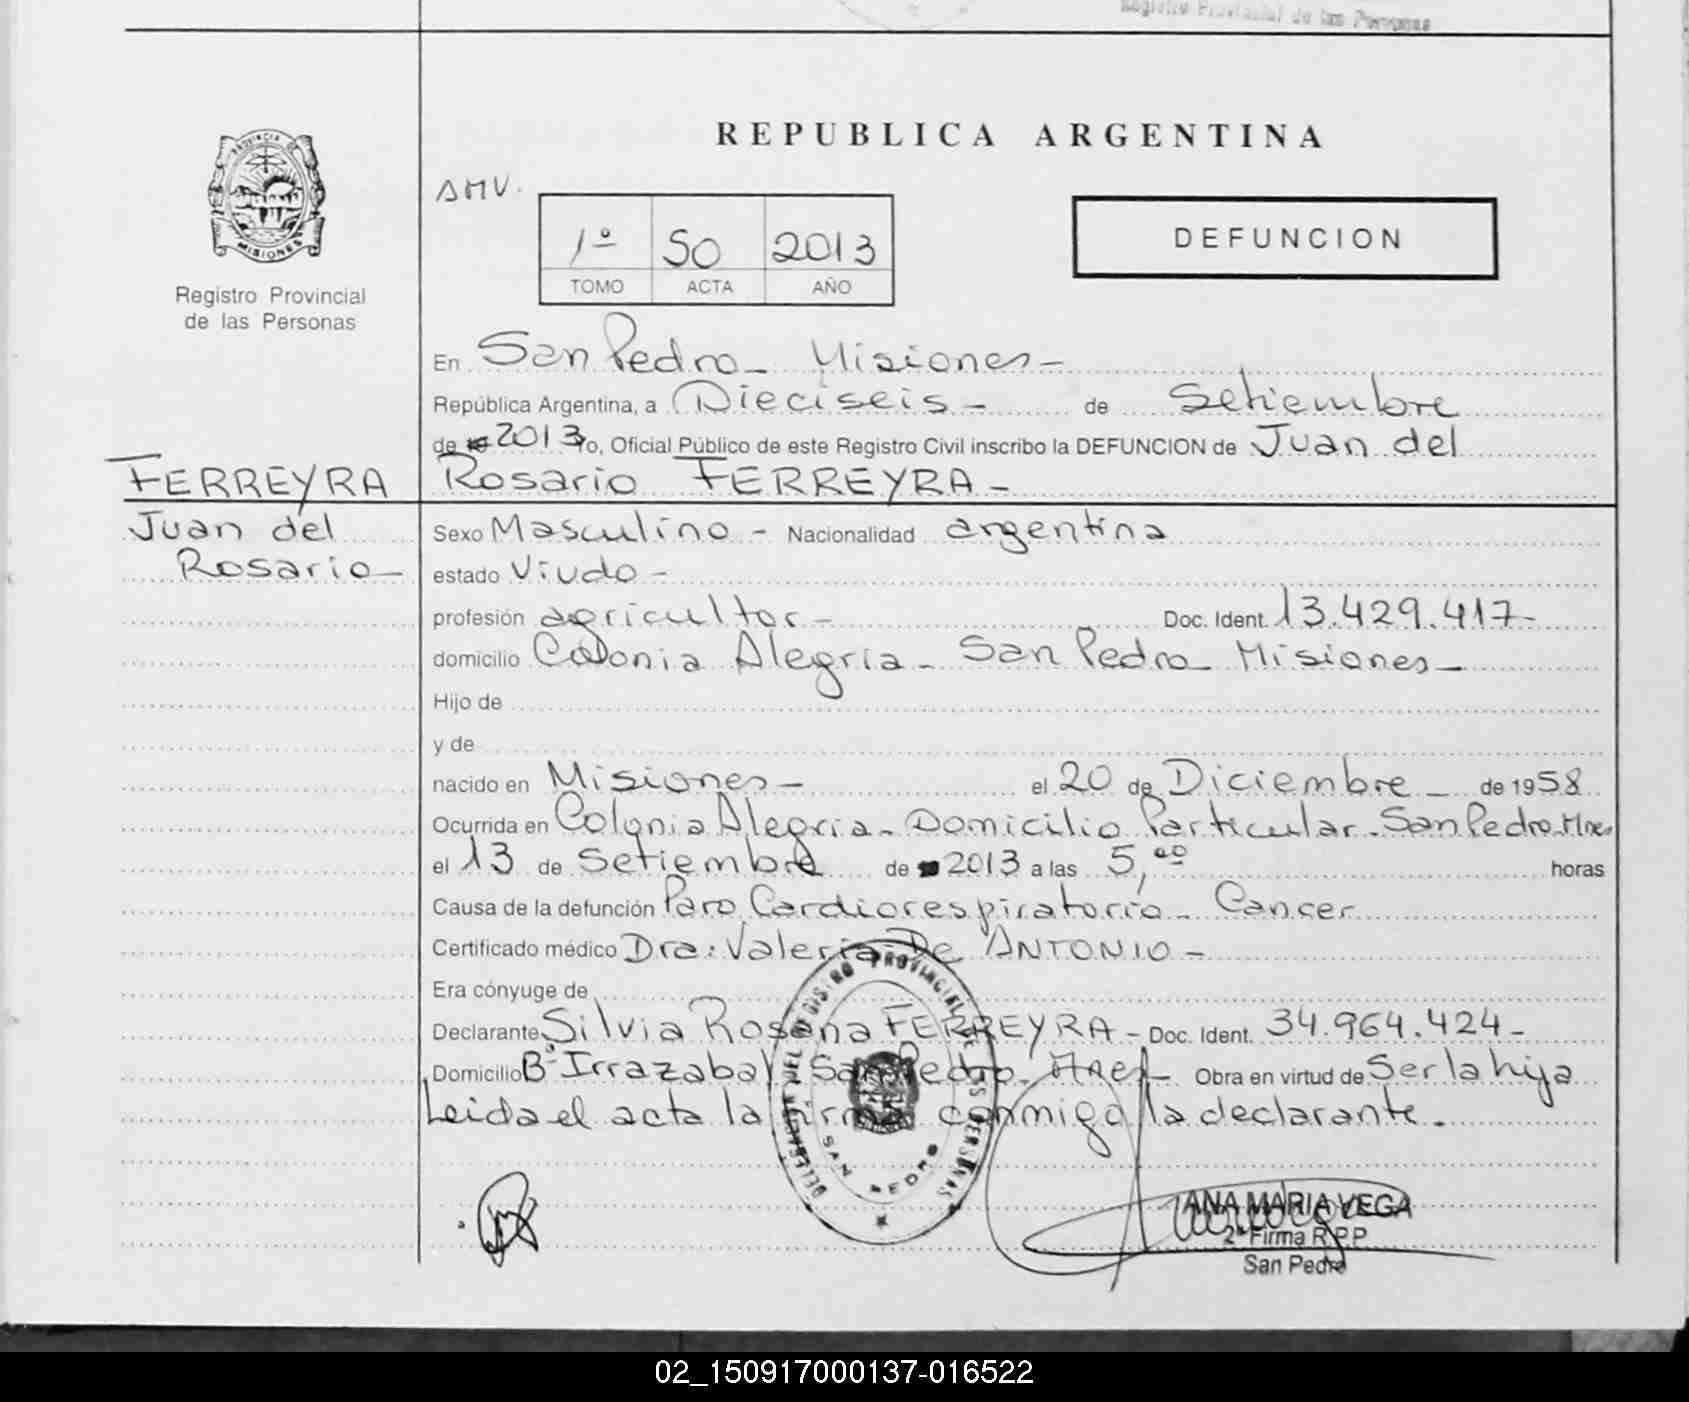 Registro Provincial de las Personas
REPUBLICA ARGENTINA
PROVINCIA DE
MISIONES
Registro Provincial
de las Personas
AMV.
1º 50 2013
TOMO ACTA AÑO
DEFUNCION
En San Pedro - Misiones -
República Argentina, a Dieciseis - de Setiembre
de 2013 Yo, Oficial Público de este Registro Civil inscribo la DEFUNCION de Juan del
Rosario FERREYRA -
FERREYRA
Juan del
Rosario -
Sexo Masculino - Nacionalidad argentina
estado Viudo -
profesión agricultor - Doc. Ident. 13.429.417-
domicilio Colonia Alegria - San Pedro Misiones -
Hijo de
y de
nacido en Misiones - el 20 de Diciembre - de 1958
Ocurrida en Colonia Alegria - Domicilio Particular - San Pedro - Mnes
el 13 de Setiembre de 2013 a las 5,00 horas
Causa de la defunción Paro Cardiorespiratorio - Cancer
Certificado médico Dra: Valeria De ANTONIO -
Era cónyuge de
Declarante Silvia Rosana FERREYRA - Doc. Ident. 34.964.424-
Domicilio Bº Irrazabal San Pedro - Mnes - Obra en virtud de Ser la hija
Leida el acta la firma conmigo la declarante.
DELEGACION DEL REGISTRO PROVINCIAL DE LAS PERSONAS
SAN PEDRO
ANA MARIA VEGA
2ª Firma R.P.P
San Pedro
02_150917000137-016522